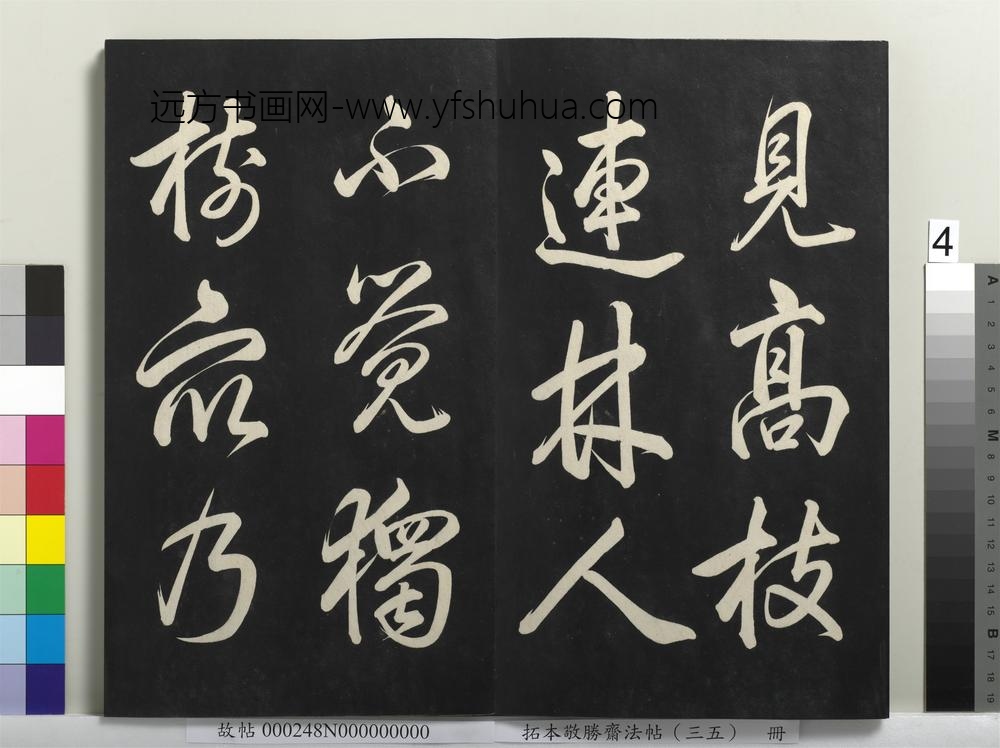 見高枝
連林人
不覺獨
樹衆乃
远方书画网-www.yfshuhua.com
4
A
1
2
3
4
5
6
M
8
9
10
11
12
13
14
15
B
17
18
19
故帖 000248N000000000
拓本敬勝齋法帖（三五） 冊